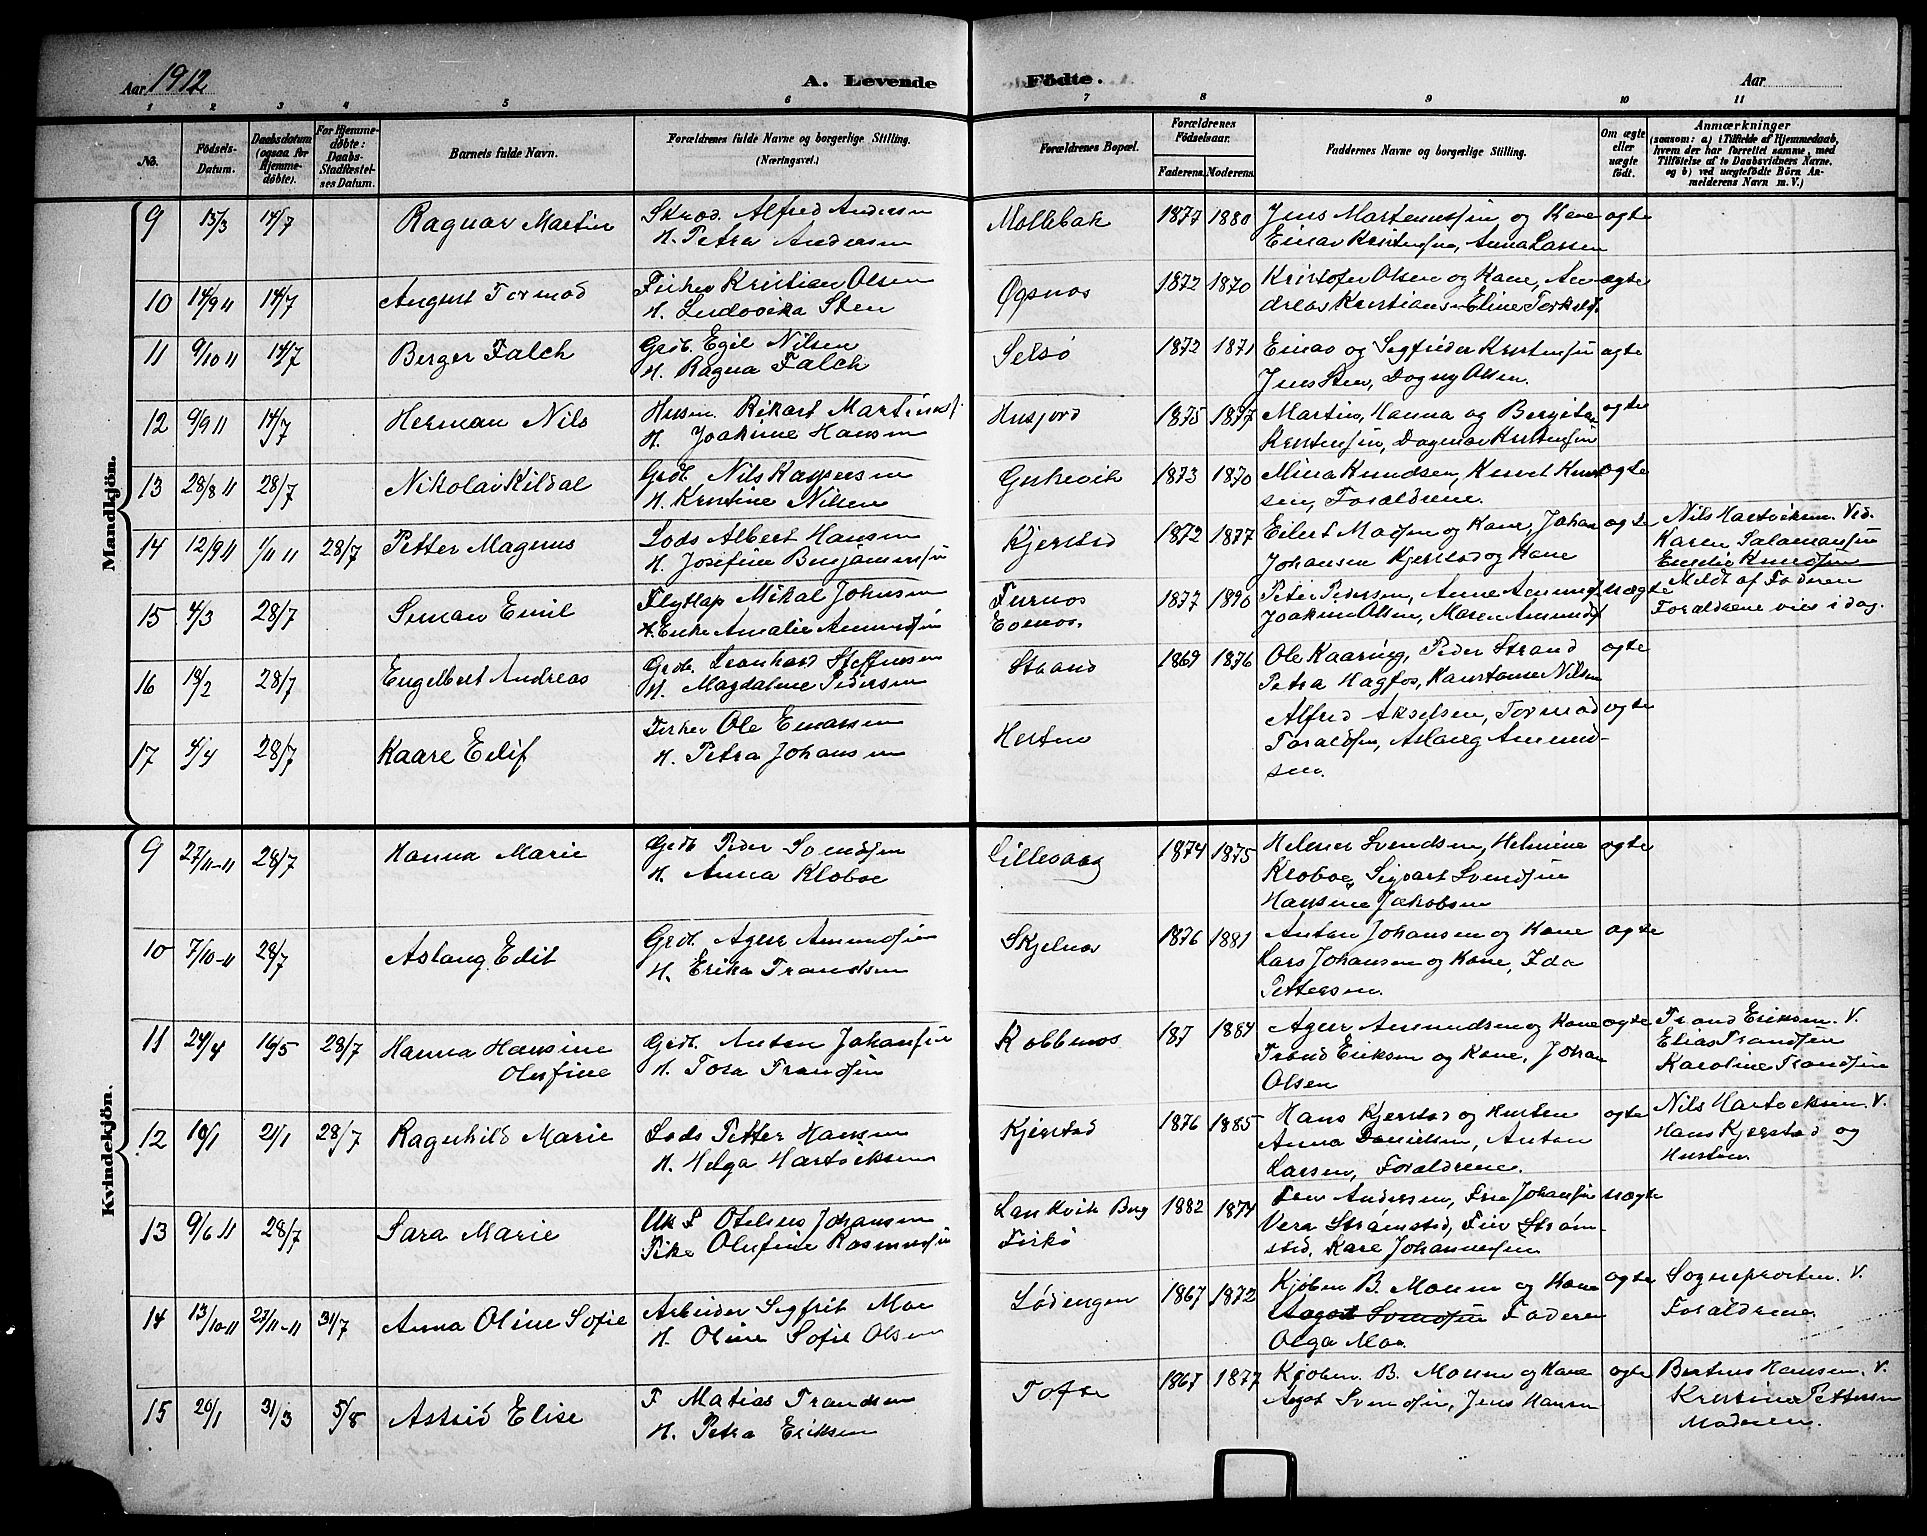 Aar 1912
A. Levende Födte.
Aar
1 2 3 4 5 6 7 8 9 10 11
No.
Födsels-Datum.
Daabsdatum (ogsaa for Hjemme-døbte).
For Hjemme-døbte: Daabs-Stadfæstel-ses Datum.
Barnets fulde Navn.
Forældrenes fulde Navne og borgerlige Stilling. (Næringsvei.)
Forældrenes Bopæl.
Forældrenes Födselsaar.
Faderens. Moderens.
Faddernes Navne og borgerlige Stilling.
Om ægte eller uægte födt.
Anmærkninger
(saasom: a) i Tilfælde af Hjemmedaab,
hvem der har forrettet samme, med
Tilføielse af to Daabsvidners Navne,
og b) ved uægtefödte Börn An-
melderens Navn m. V.)
Mandkjön.
9 13/3 14/7 Ragnar Martin Alfred Andersen Mollebak 1877 1880 Jens Martinussen og Kone ægte
H. Petra Andersen Einar Kristensen, Anna Larsen
10 14/9 11 14/7 August Tormod Fisker Kristian Olsen Øgsnes 1872 1870 Kristofer Olsen og Kone, An- ægte
H. Ludovika Sten dreas Kristians. Eline Torkelds.
11 9/10 11 14/7 Berger Falch Grdb. Egil Nilsen Selsø 1872 1871 Einar og Sigfrider Kristensen ægte
H. Ragna Falch Jens Sten, Dagny Olsen.
12 9/9 11 14/7 Herman Nils Husm. Rikart Martinus. Husjord 1875 1877 Martin, Hanna og Bergita ægte
H. Joakime Hansen Kristensen, Dagmar Kristensen
13 28/8 11 28/7 Nikolai Kildal Grdb. Nils Kaspersen 1873 1870 Mina Knudsen, Knut Knud- ægte
H. Kristine Nilsen sen, Forældrene.
14 12/9 11 1/11 11 28/7 Petter Magnus Lods Albert Hansen Kjerstad 1872 1877 Eilert Madsen og Kone, Johan ægte Nils Hartviksen. Vid.
H. Josefine Benjaminsen Johansen Kjerstad og Kone Karen Salamonsen
Emelie Knudsen
15 4/3 28/7 Simon Emil Flytlap Mikal Johnsen 1877 1890 Peter Pedersen, Anne Amunds. uægte Meldt af Faderen
Enke Amalie Amundsen Joakim Olsen, Maren Amunds. Forældrene viet i dag.
16 18/2 28/7 Engelbert Andreas Grdb. Leonhard Steffensen Strand 1869 1876 Ole Kaaring, Peder Strand ægte
H. Magdaline Pedersen Petra Hagfos, Konstanse Nilsen
17 4/4 28/7 Kaare Edif Fisker Ole Enarssen Hesten Alfred Akselsen, Tormod ægte
H. Petra Johansen Toraldsen, Aslaug Amund-
sen.
Kvindekjön.
9 27/11-11 28/7 Hanna Marie Grdb. Peder Svendsen 1874 1875 Helmer Svendsen, Helmine ægte
H. Anna Kloboe Kloboe, Sigvart Svendsen
Hansine Jakobsen
10 7/10-11 28/7 Aslaug Edit Grdb. Ager Amundsen Skjelnes 1876 1881 Anton Johansen og Kone ægte
H. Erika Trandsen Lars Johansen og Kone, Ida
Pettersen.
11 24/4 16/5 28/7 Hanna Hansine Grdb. Anton Johansen Kobbenes 187 1884 Ager Amundsen og Kone ægte Trond Eriksen. V.
Olufine H. Tora Trandsen Trond Eriksen og Kone, Johan Elias Trandsen
Olsen Karoline Trandsen
12 10/1 21/1 28/7 Ragnhild Marie Lods Petter Hansen Kjerstad 1876 1885 Hans Kjerstad og Husten ægte Nils Hartviksen. V.
H. Helga Hartviksen Anna Danielsen, Anton Hans Kjerstad og
Larsen, Forældrene. Husten.
13 9/6 11 28/7 Sara Marie Uk F Otelius Johansen 1882 1874 Andersen, Johansen uægte
Pike Olufine Rasmussen Fiskø Vera Strømsted, Strøm-
sted, Kare Johannessen
14 13/10-11 27/11-11 31/7 Anna Oline Sofie Arbeider Sigfrit Moe Lødengen 1867 1872 Kjøbm B. Monsen og Kone ægte Sogneprosten. V.
H. Oline Sofie Olsen Aagot Svendsen Faderen Forældrene.
Olga Moe.
15 20/1 31/3 5/8 Astrid Elise F Matias Trandsen Tofte 1867 1877 Kjøbm. B. Monsen og Kone ægte Berteus Hansen. V.
H. Petra Eriksen Aagot Svendsen, Jens Hansen Kristine Pettersen
Moderen.